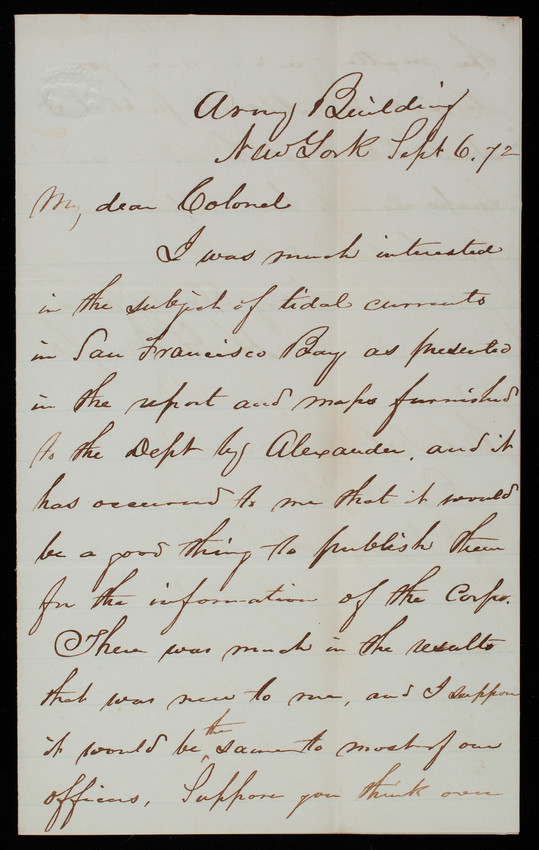 Army Building
New York Sept 6. 72
My dear Colonel
I was much interested
in the subject of tidal currents
in San Francisco Bay as presented
in the report and maps furnished
to the Dept by Alexander, and it
has occurred to me that it would
be a good thing to publish them
for the information of the Corps.
There was much in the results
that was new to me, and I suppose
it would be the same to most of our
officers. Suppose you think over